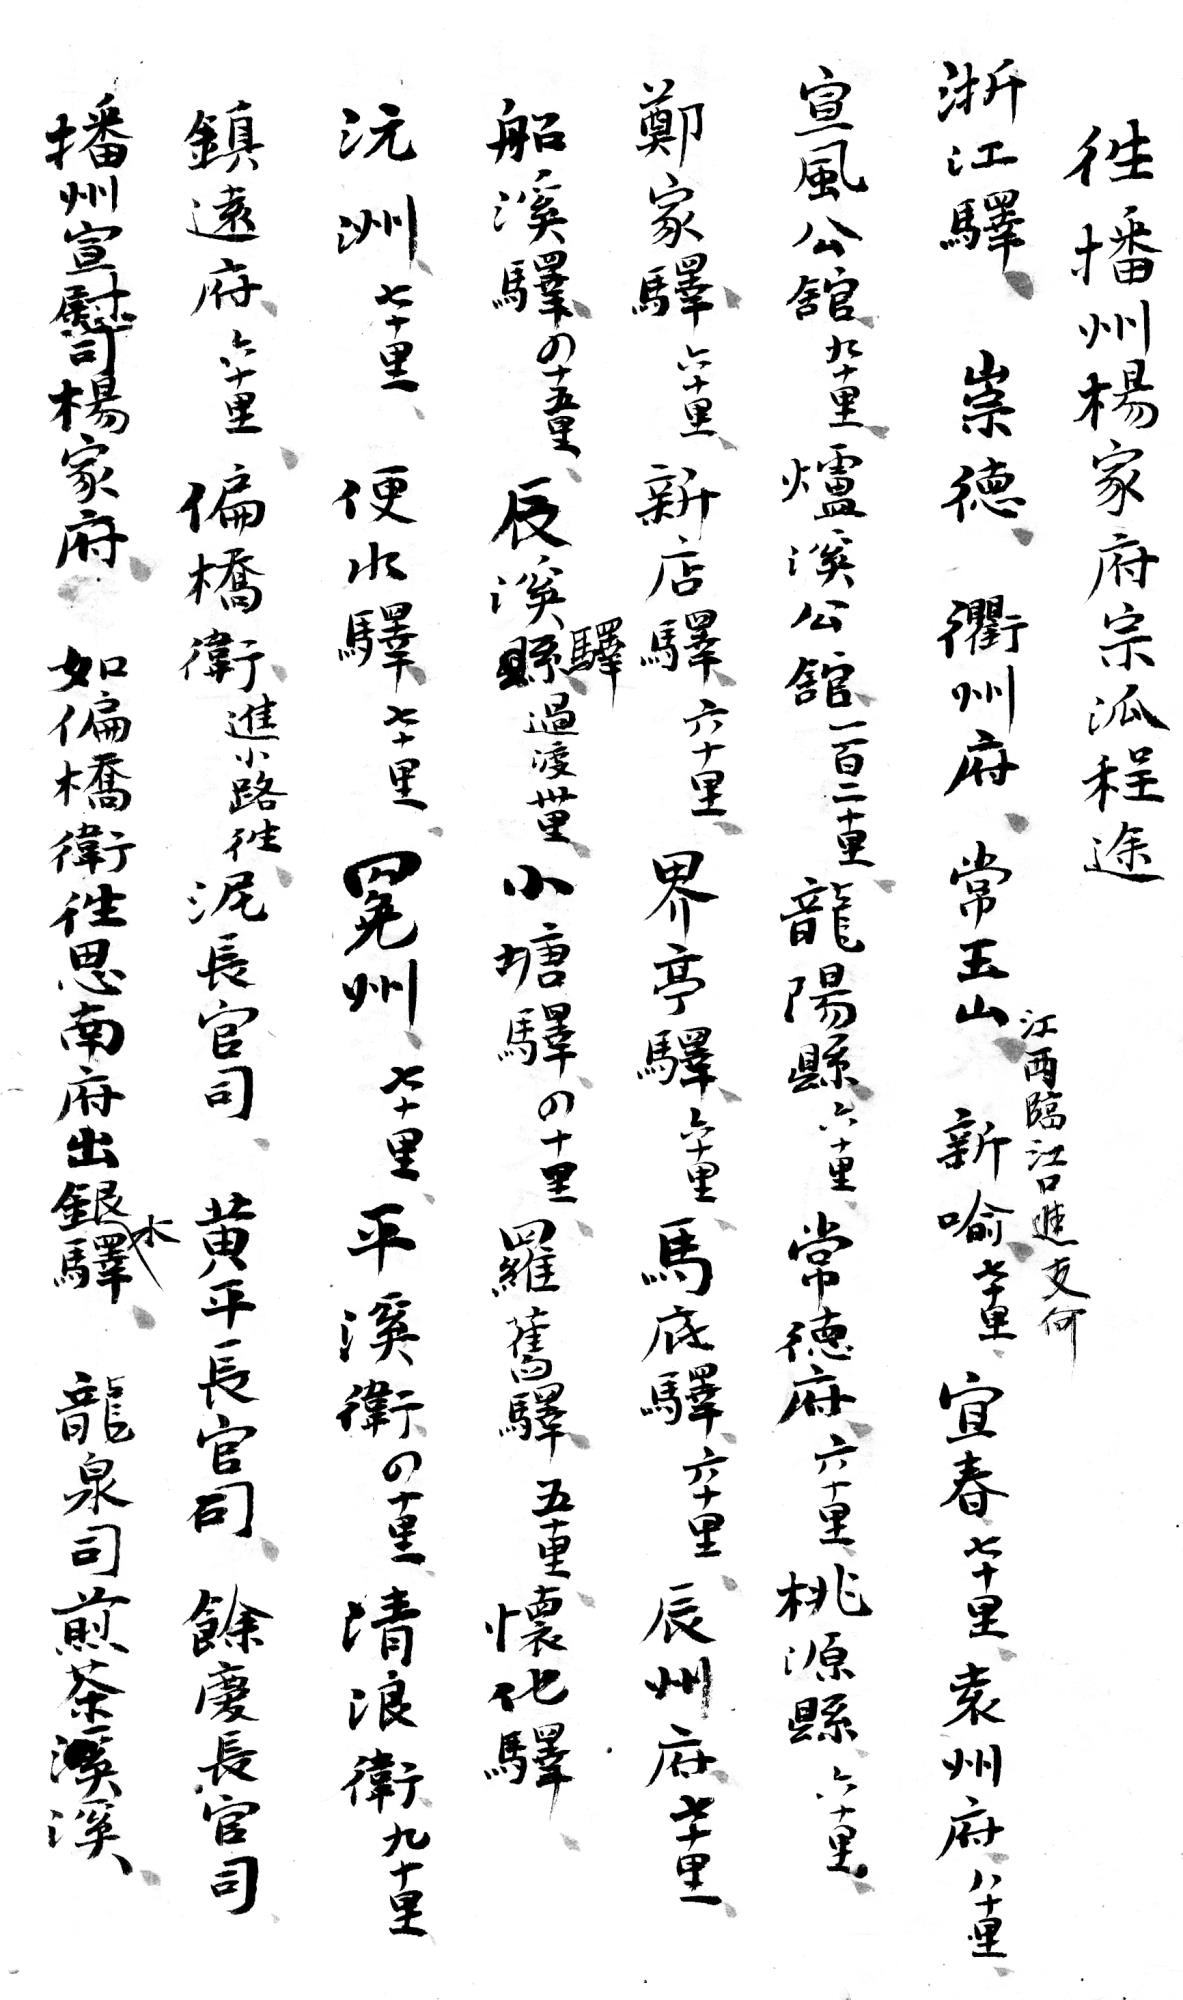 徃播州楊家府宗泒程途
浙江驛、崇德、衢州府、常玉山、新喻、七十里、宜春、七十里、袁州府、八十里、
江西臨江口進支何
宣風公舘、九十里、爐溪公舘、一百二十里、龍陽縣、六十里、常德府、六十里、桃源縣、六十里、
鄭家驛、六十里、新店驛、六十里、界亭驛、六十里、馬底驛、六十里、辰州府、七十里、
船溪驛、四十五里、辰溪縣驛、過渡卅里、小塘驛、四十里、羅舊驛、五十里、懷化驛、
沅洲、七十里、便水驛、七十里、冕州、七十里、平溪衛、四十里、清浪衛、九十里
鎮遠府、六十里、偏橋衛、進小路徃、泥長官司、黄平長官司、餘慶長官司
播州宣慰司楊家府、如偏橋衛徃思南府出銀水驛、龍泉司煎茶溪溪、